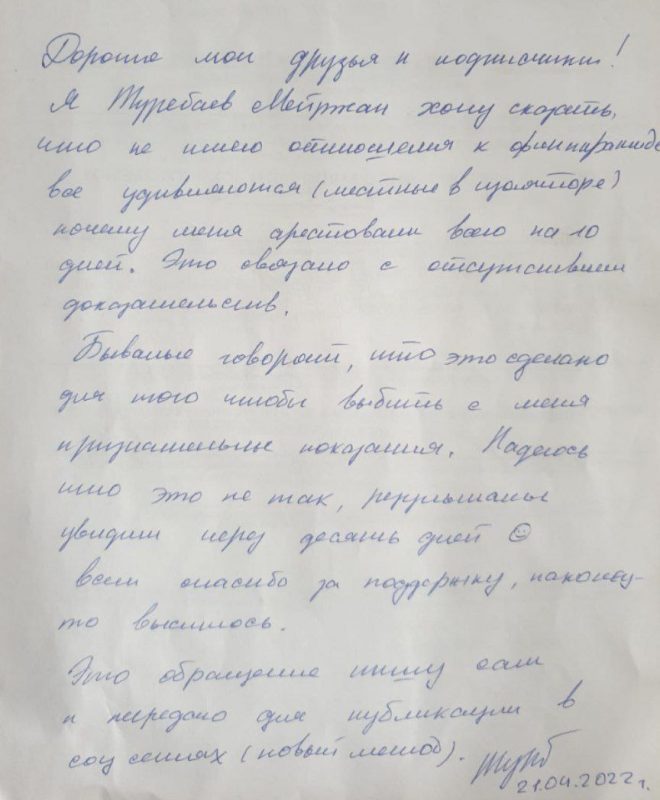 Дорогие мои друзья и подписчики!
Я Туребаев Мейржан хочу сказать,
что не имею отношения к финпирамиде
все удивляются (местные в изоляторе)
почему меня арестовали всего на 10
дней. Это связано с отсутствием
доказательств.
Бывалые говорят, что это сделано
для того чтобы выбить с меня
признательные показания. Надеюсь
что это не так, результаты
увидим через десять дней ☺
всем спасибо за поддержку, наконец-
то выспюсь.
Это обращение пишу сам
и передаю для публикации в
соц сетях (новый метод).
21.04.2022 г.